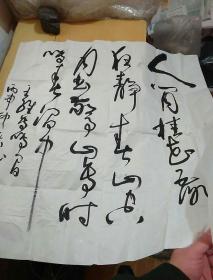 人闲桂花落
夜静春山空
月出惊山鸟时
鸣春涧中
王维鸟鸣涧
丙申